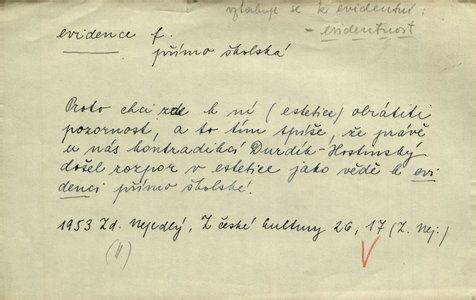 vztahuje se k evidentní;
- evidentnost
evidence f.
přímo školská
Proto chci zde k ní (estetice) obrátiti
pozornost, a to tím spíše, že právě
u nás kontradikcí Durdík-Hostinský
došel rozpor v estetice jako vědě k evi
denci přímo školské.
1953 Zd. Nejedlý, Z české kultury 26, 17 (Z. Nej.)
(II)